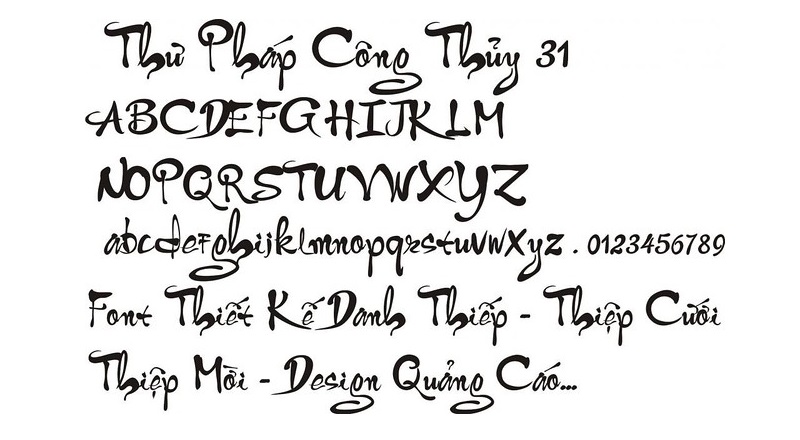 Thư Pháp Công Thủy 31
ABCDEFGHIJKLM
NOPQRSTUVWXYZ
abcdefghijklmnopqrstuvwxyz . 0123456789
Font Thiết Kế Danh Thiếp - Thiệp Cưới
Thiệp Mời - Design Quảng Cáo...